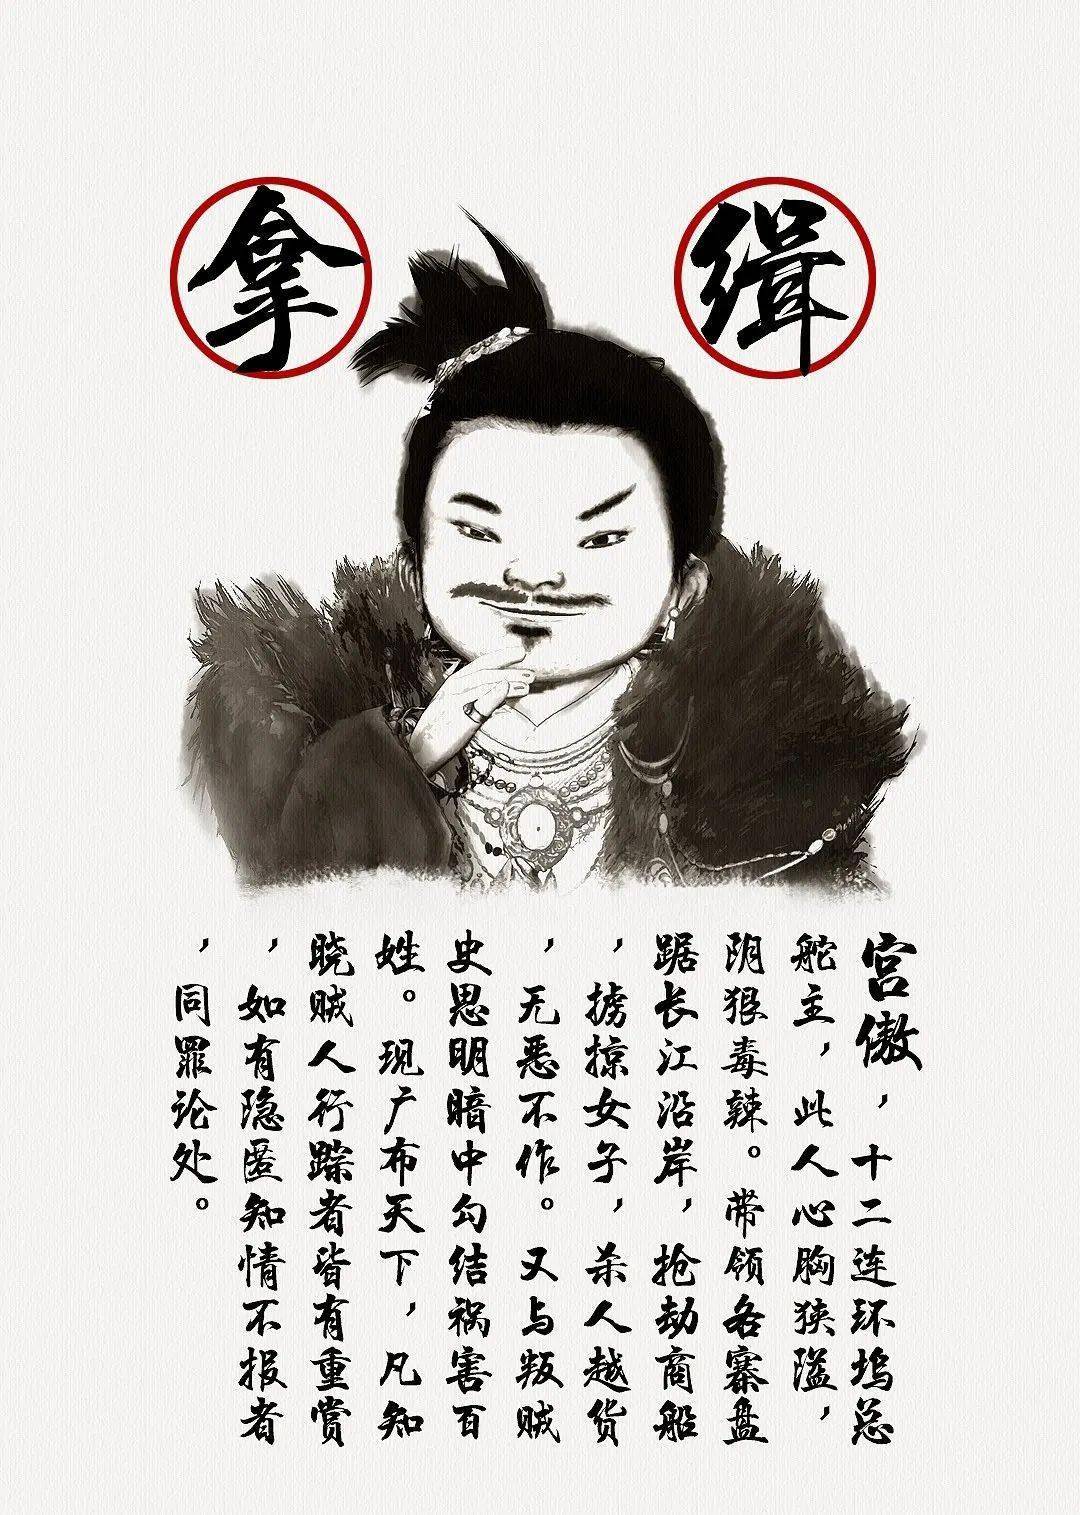 缉拿
宫傲，十二连环坞总
舵主，此人心胸狭隘，
阴狠毒辣。带领各寨盘
踞长江沿岸，抢劫商船
，掳掠女子，杀人越货
，无恶不作。又与叛贼
史思明暗中勾结祸害百
姓。现广布天下，凡知
晓贼人行踪者皆有重赏
，如有隐匿知情不报者
，同罪论处。